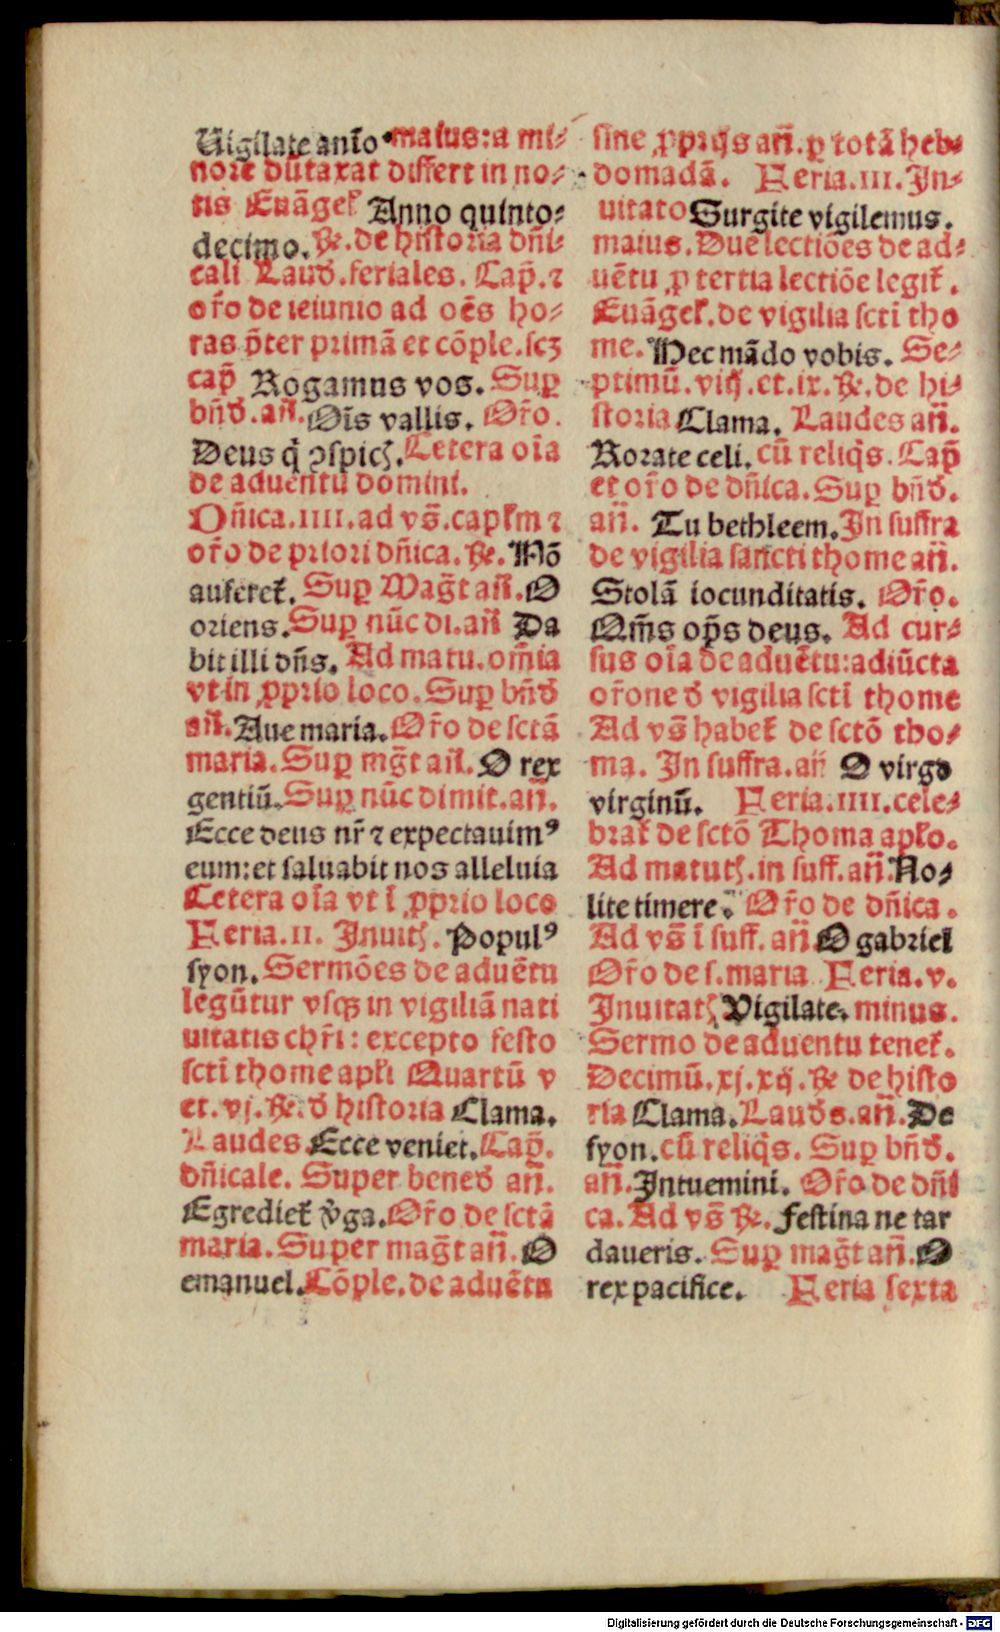 Uigilate anīo maius: a mi-
nore dūtaxat differt in no-
tis Euāgel̄ Anno quinto-
decimo. R̄. de historia dn̄i-
cali Laud̄. feriales. Cap̄. ⁊
or̄o de ieiunio ad oēs ho-
ras p̄ter primā et cōple. scꝫ
cap̄ Rogamus vos. Sup̄
bn̄d̄. an̄. Oīs vallis. Or̄o.
Deus q̄ ꝯspicꝭ. Cetera oīa
de aduentu domini.
Dn̄ica. IIII. ad vs̄. cap̄lm ⁊
or̄o de priori dn̄ica. R̄. Nō
auferet̄. Sup̄ Maḡt an̄. O
oriens. Sup̄ nūc di. an̄ Da
bit illi dn̄s. Ad matu. om̄ia
vt in ꝓprio loco. Sup̄ bn̄d̄
an̄. Aue maria. Or̄o de sctā
maria. Sup̄ mḡt an̄. O rex
gentiū. Sup̄ nūc dimit. an̄.
Ecce deus nr̄ ⁊ expectauimꝰ
eum: et saluabit nos alleluia
Cetera oīa vt ī ꝓprio loco
Feria. II. Inuitꝭ. Populꝰ
syon. Sermōes de aduētu
legūtur vsqꝫ in vigiliā nati
uitatis chr̄i: excepto festo
sctī thome apl̄i Quartū v
et. vj. R̄. d̄ historia Clama.
Laudes Ecce veniet. Cap̄.
dn̄icale. Super bened̄ an̄.
Egrediet̄ v̄ga. Or̄o de sctā
maria. Super maḡt an̄. O
emanuel. Cōple. de aduētu
sine ꝓprijs an̄. ꝑ totā heb-
domadā. Feria. III. In-
uitato Surgite vigilemus.
maius. Due lectiōes de ad-
uētu, ꝓ tertia lectiōe legit̄.
Euāgel̄. de vigilia sctī tho
me. Hec mādo vobis. Se-
ptimū. viij. et. ix. R̄. de hi-
storia Clama. Laudes an̄.
Rorate celi. cū reliq̄s. Cap̄
et or̄o de dn̄ica. Sup̄ bn̄d̄.
an̄. Tu bethleem. In suffra
de vigilia sancti thome an̄.
Stolā iocunditatis. Or̄o.
Qm̄s op̄s deus. Ad cur-
sus oīa de aduētu: adiūcta
or̄one d̄ vigilia sctī thome
Ad vs̄ habet̄ de sctō tho-
ma. In suffra. an̄ O virgo
virginū. Feria. IIII. cele-
brat̄ de sctō Thoma apl̄o.
Ad matutꝭ. in suff. an̄. No-
lite timere. Or̄o de dn̄ica.
Ad vs̄ ī suff. an̄ O gabriel
Or̄o de s. maria Feria. v.
Inuitatꝭ Vigilate. minus.
Sermo de aduentu tenet̄.
Decimū. xj. xij. R̄ de histo
ria Clama. Laud̄s. an̄. De
syon. cū reliq̄s. Sup̄ bn̄d̄.
an̄. Intuemini. Or̄o de dn̄i
ca. Ad vs̄ R̄. Festina ne tar
daueris. Sup̄ maḡt an̄. O
rex pacifice. Feria sexta
Digitalisierung gefördert durch die Deutsche Forschungsgemeinschaft - DFG